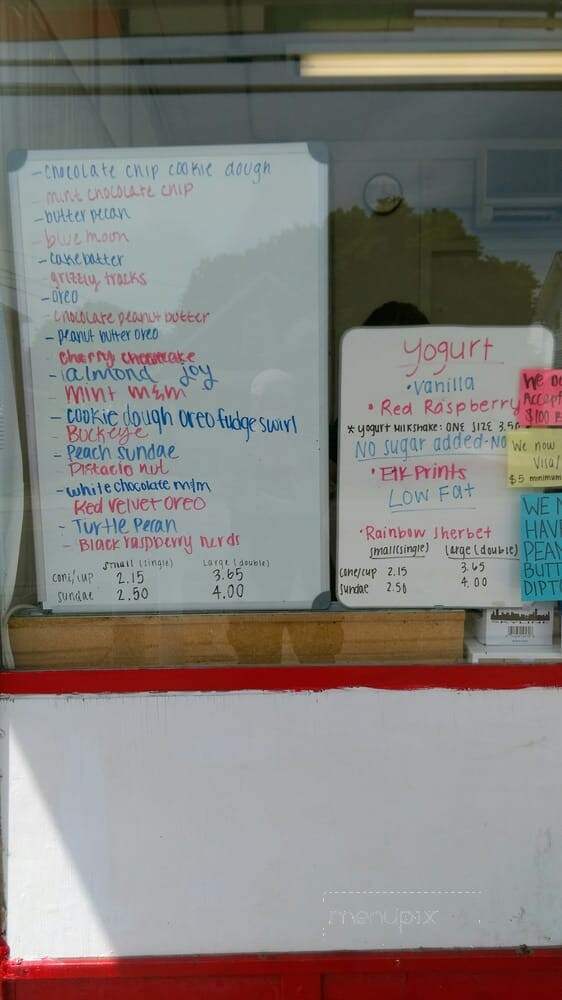 - chocolate chip cookie dough
- mint chocolate chip
- butter pecan
- blue moon
- cake batter
- grizzly tracks
- oreo
- chocolate peanut butter
- peanut butter oreo
- cherry cheesecake
- almond joy
- mint m&m
- cookie dough oreo fudge swirl
- Buckeye
- Peach sundae
- Pistacio nut
- white chocolate m/m
- Red velvet oreo
- Turtle Pecan
- Black raspberry nerds
small (single) Large (double)
cone/cup 2.15 3.65
sundae 2.50 4.00
Yogurt
• Vanilla
• Red Raspberry
* Yogurt Milkshake: ONE SIZE 3.50
No sugar added-No
• Elk Prints
LOW Fat
• Rainbow Sherbet
small(single) Large (double)
cone/cup 2.15 3.65
sundae 2.50 4.00
We
Accept
$100 B
We now
Visa/
$5 minimum
WE
HAV
PEAN
BUTT
DIPT
SKYLINE
menupix